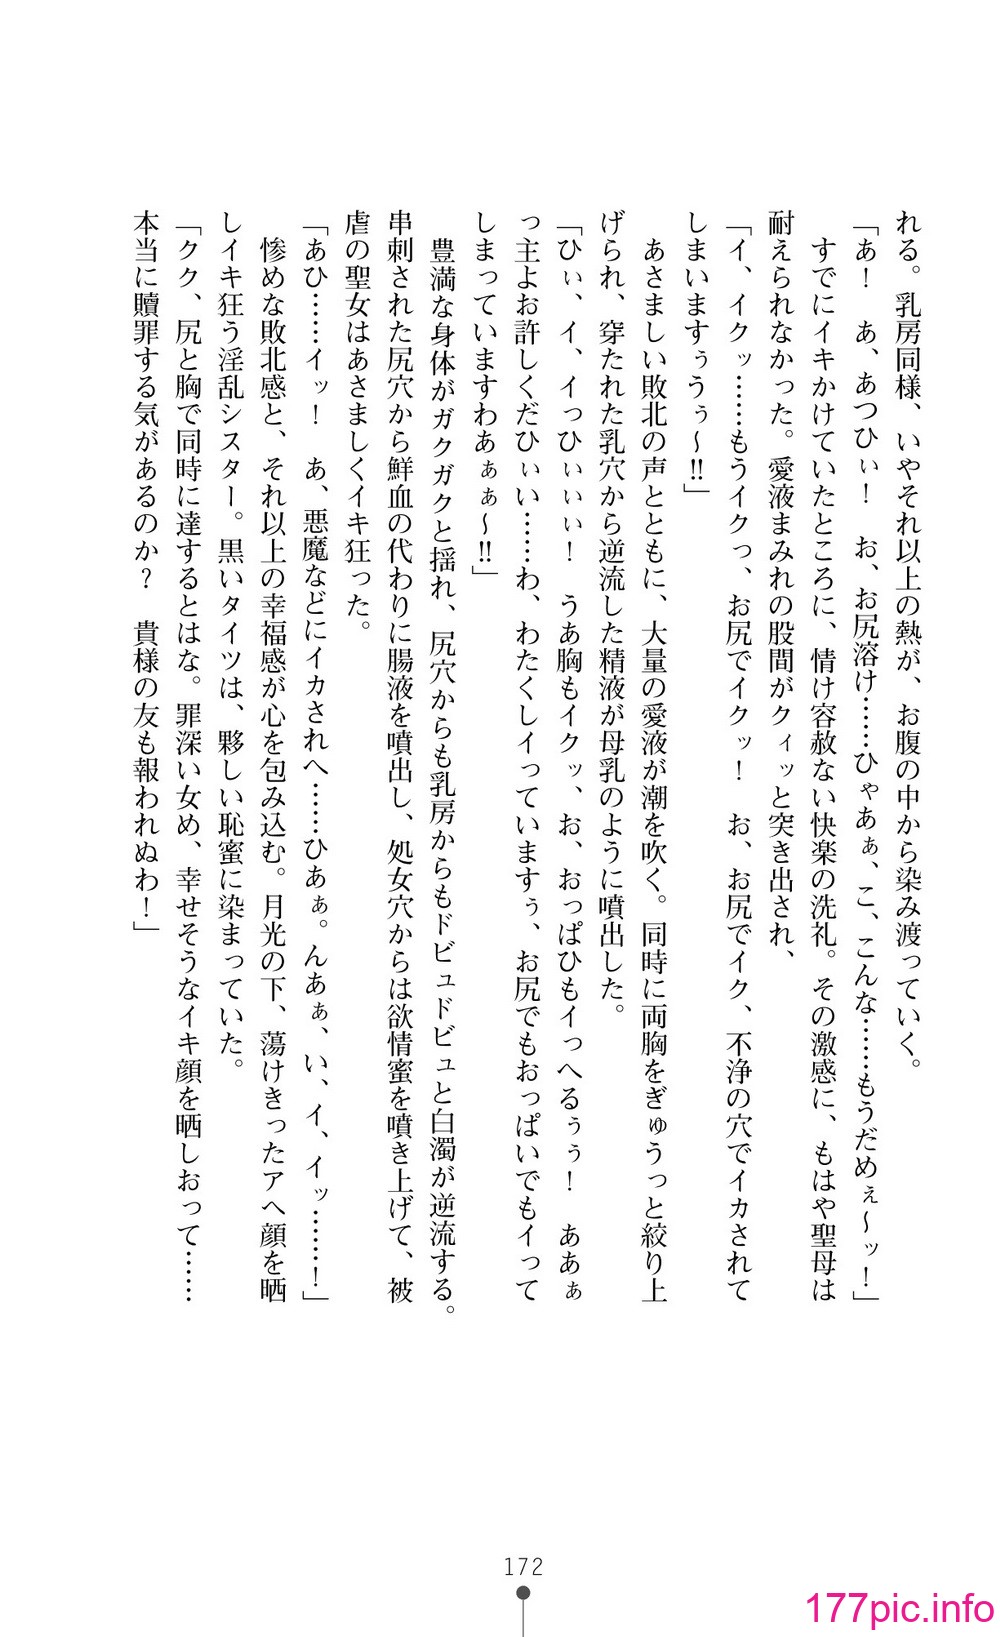 れる。乳房同様、いやそれ以上の熱が、お腹の中から染み渡っていく。
「あ！　あ、あつひぃ！　お、お尻溶け……ひゃあぁ、こ、こんな……もうだめぇ～ッ！」
すでにイキかけていたところに、情け容赦ない快楽の洗礼。その激感に、もはや聖母は
耐えられなかった。愛液まみれの股間がクィッと突き出され、
「イ、イクッ……もうイクっ、お尻でイクッ！　お、お尻でイク、不浄の穴でイカされて
しまいますぅうぅ～!!」
あさましい敗北の声とともに、大量の愛液が潮を吹く。同時に両胸をぎゅうっと絞り上
げられ、穿たれた乳穴から逆流した精液が母乳のように噴出した。
「ひぃ、イ、イっひぃぃぃ！　うあ胸もイクッ、お、おっぱひもイっへるぅぅ！　ああぁ
っ主よお許しくだひぃい……わ、わたくしイっていますぅ、お尻でもおっぱいでもイって
しまっていますわあぁぁ～!!」
豊満な身体がガクガクと揺れ、尻穴からも乳房からもドビュドビュと白濁が逆流する。
串刺された尻穴から鮮血の代わりに腸液を噴出し、処女穴からは欲情蜜を噴き上げて、被
虐の聖女はあさましくイキ狂った。
「あひ……イッ！　あ、悪魔などにイカされへ……ひあぁ。んあぁ、い、イ、イッ……！」
惨めな敗北感と、それ以上の幸福感が心を包み込む。月光の下、蕩けきったアヘ顔を晒
しイキ狂う淫乱シスター。黒いタイツは、夥しい恥蜜に染まっていた。
「クク、尻と胸で同時に達するとはな。罪深い女め、幸せそうなイキ顔を晒しおって……
本当に贖罪する気があるのか？　貴様の友も報われぬわ！」
172
177pic.info